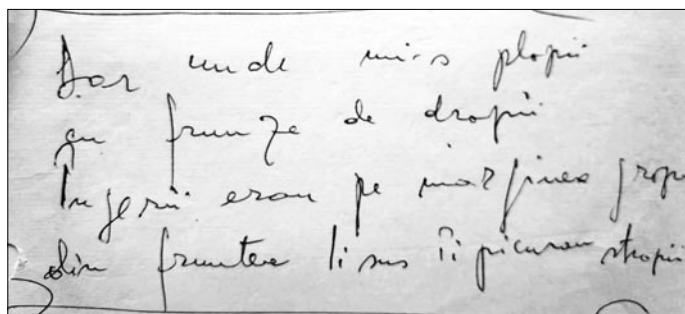 Dar unde mi-s plopii
cu frunze de dropii
Îngerii erau pe marginea gropii
din fruntea lui sus îi picurau stropii